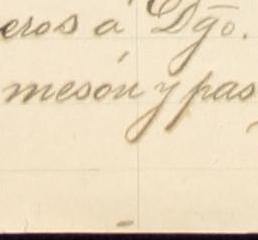 eros á Dgo.
mesón y pas